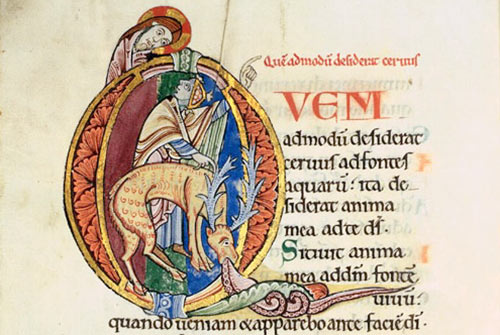 Quē admodū desiderat ceruus
QVEM
admodū desiderat
ceruus adfontes
aquarū: ita de
siderat anima
mea adte dś.
Sitiuit anima
mea addm̄ fontē
uiuū:
quando ueniam &apparebo ante faciē di